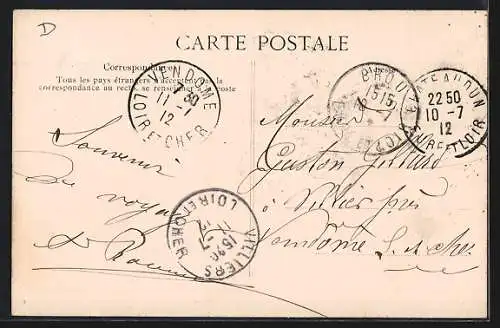 D
CARTE POSTALE
Correspondance
Tous les pays étrangers n'acceptent pas la
correspondance au recto, se renseigner à la poste
VENDOME
11-7
12
LOIR-ET-CHER
BROU
15 15
CHATEAUDUN
22 50
10-7
12
EURE-ET-LOIR
Monsieur
Gaston
à Villiers près
Vendôme L. et Cher
Souvenir
de voyage
VILLIERS
LOIR-ET-CHER